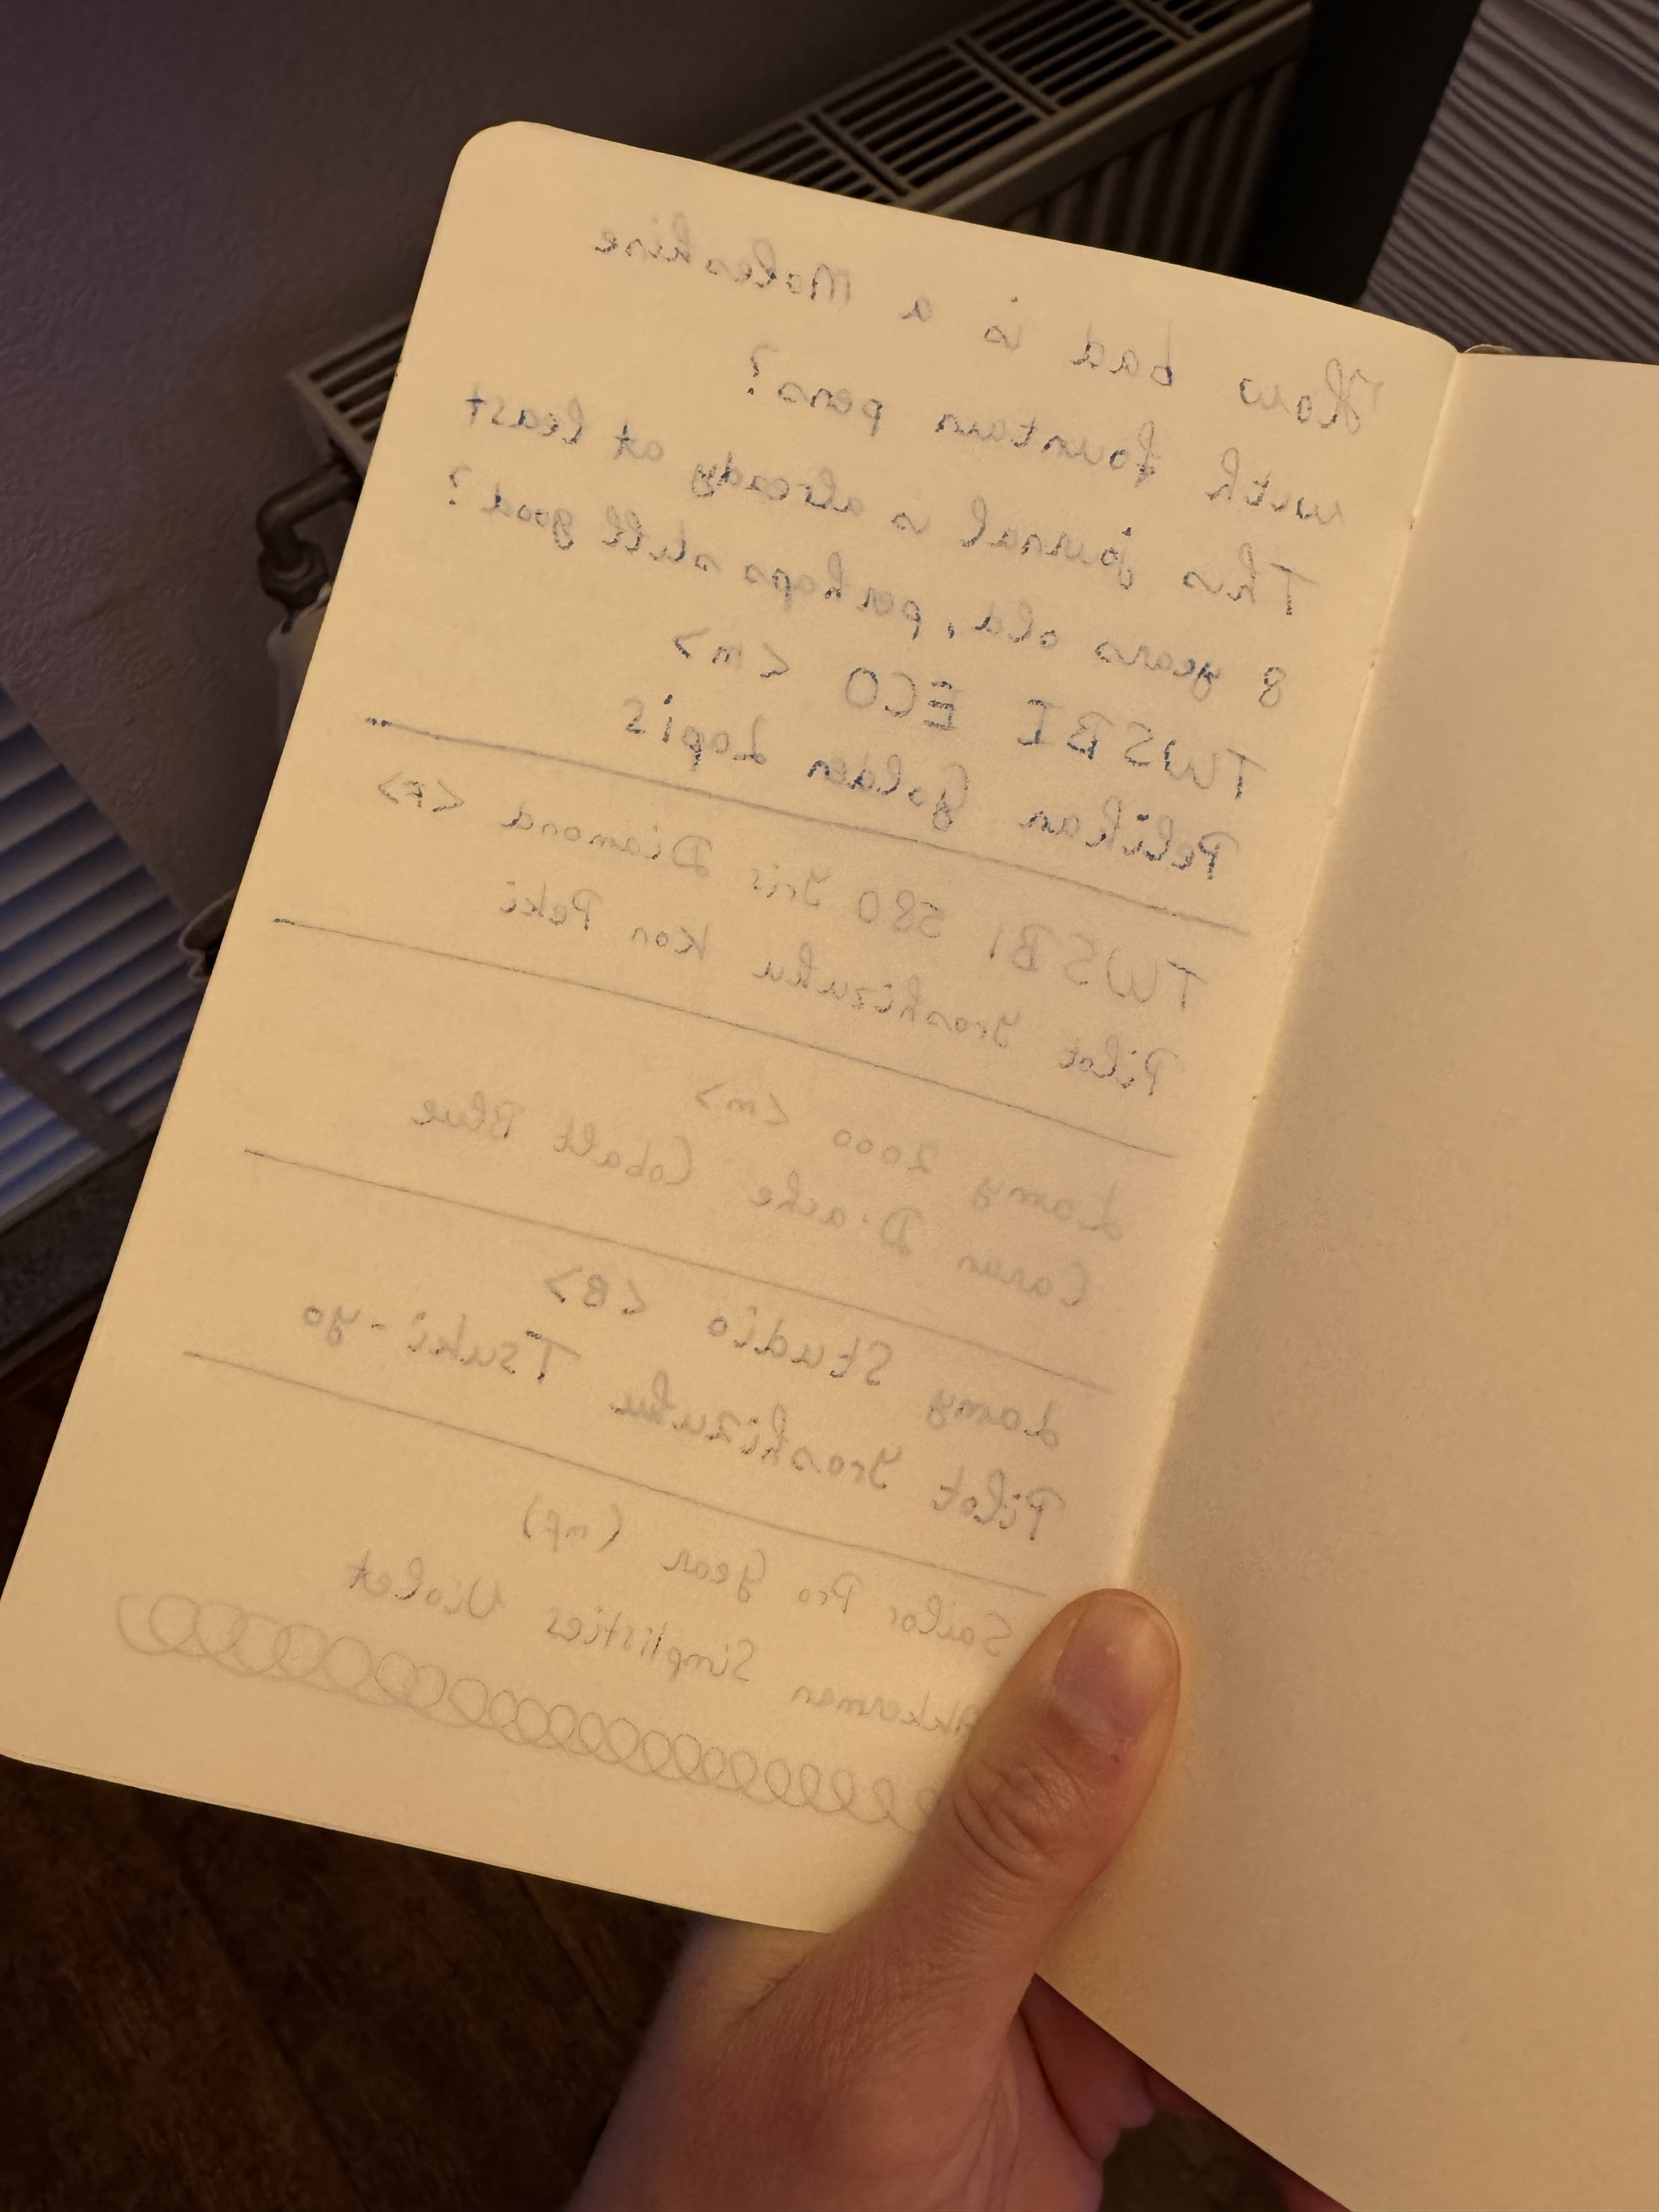 How bad is a Moleskine
with fountain pens?
This journal is already at least
8 years old, perhaps still good?
TWSBI ECO <m>
Pelikan Golden Lapis
TWSBI 580 Iris Diamond <F>
Pilot Iroshizuku Kon Peki
Lamy 2000 <m>
Caran D'ache Cobalt Blue
Lamy Studio <B>
Pilot Iroshizuku Tsuki-yo
Sailor Pro Gear (mF)
Akkerman Simplisties Violet